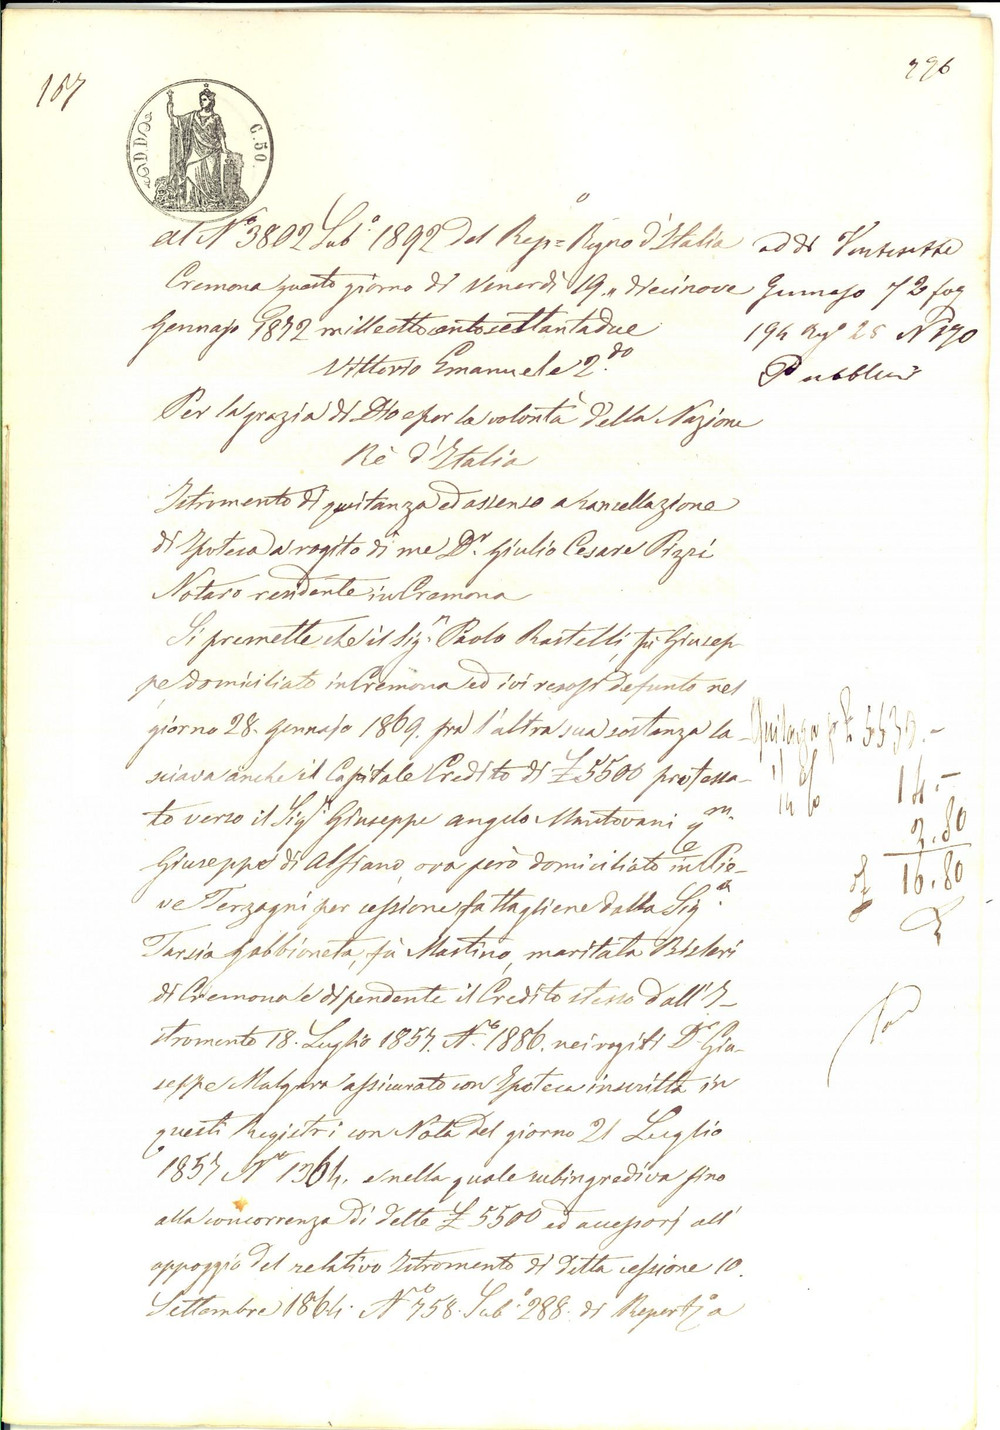 187
296
C. 50.
al N.o 3802 Sub.o 1892 del Rep.o Regno d'Italia
Cremona questo giorno di Venerdì 19,, diecinove
Gennajo 1872 milleottocentosettantadue
Vittorio Emanuele 2.do
Per la grazia di Dio e per la volontà della Nazione
Rè d'Italia
Istromento di quitanza ed assenso a cancellazione
di Ipoteca a rogito di me D.r Giulio Cesare Pizzi
Notaro residente in Cremona
Si premette che il Sig.n Paolo Rastelli, fù Giusep-
pe domiciliato in Cremona ed ivi resosi defunto nel
giorno 28. Gennajo 1869. frà l'altra sua sostanza la-
sciava anche il Capitale Credito di £ 5500 professa-
to verso il Sig.r Giuseppe Angelo Mantovani q.m
Giuseppe di Alfiano, ora però domiciliato in Pie-
ve Terzagni per cessione fattagliene dalla Sig.a
Tarsia Gabbioneta, fù Martino, maritata Bisleri
di Cremona e dipendente il Credito stesso dall'I-
stromento 18. Luglio 1857. N.o 1886. nei rogiti D.r Giu-
seppe Malgara assicurato con Ipoteca inscritta in
questi Registri con Nota del giorno 21 Luglio
1857 N.o 1364. e nella quale subingrediva fino
alla concorrenza di dette £ 5500 ed accessorj all'
appoggio del relativo Istromento di detta cessione 10.
Settembre 1864. N.o 758. Sub.o 288. di Repert.o a
addi Ventisette
Gennajo 72 fog
194 Reg.o 25 N 190
Pubblici
Quitanza p £ 5530.-
14.-
2.80
16.80